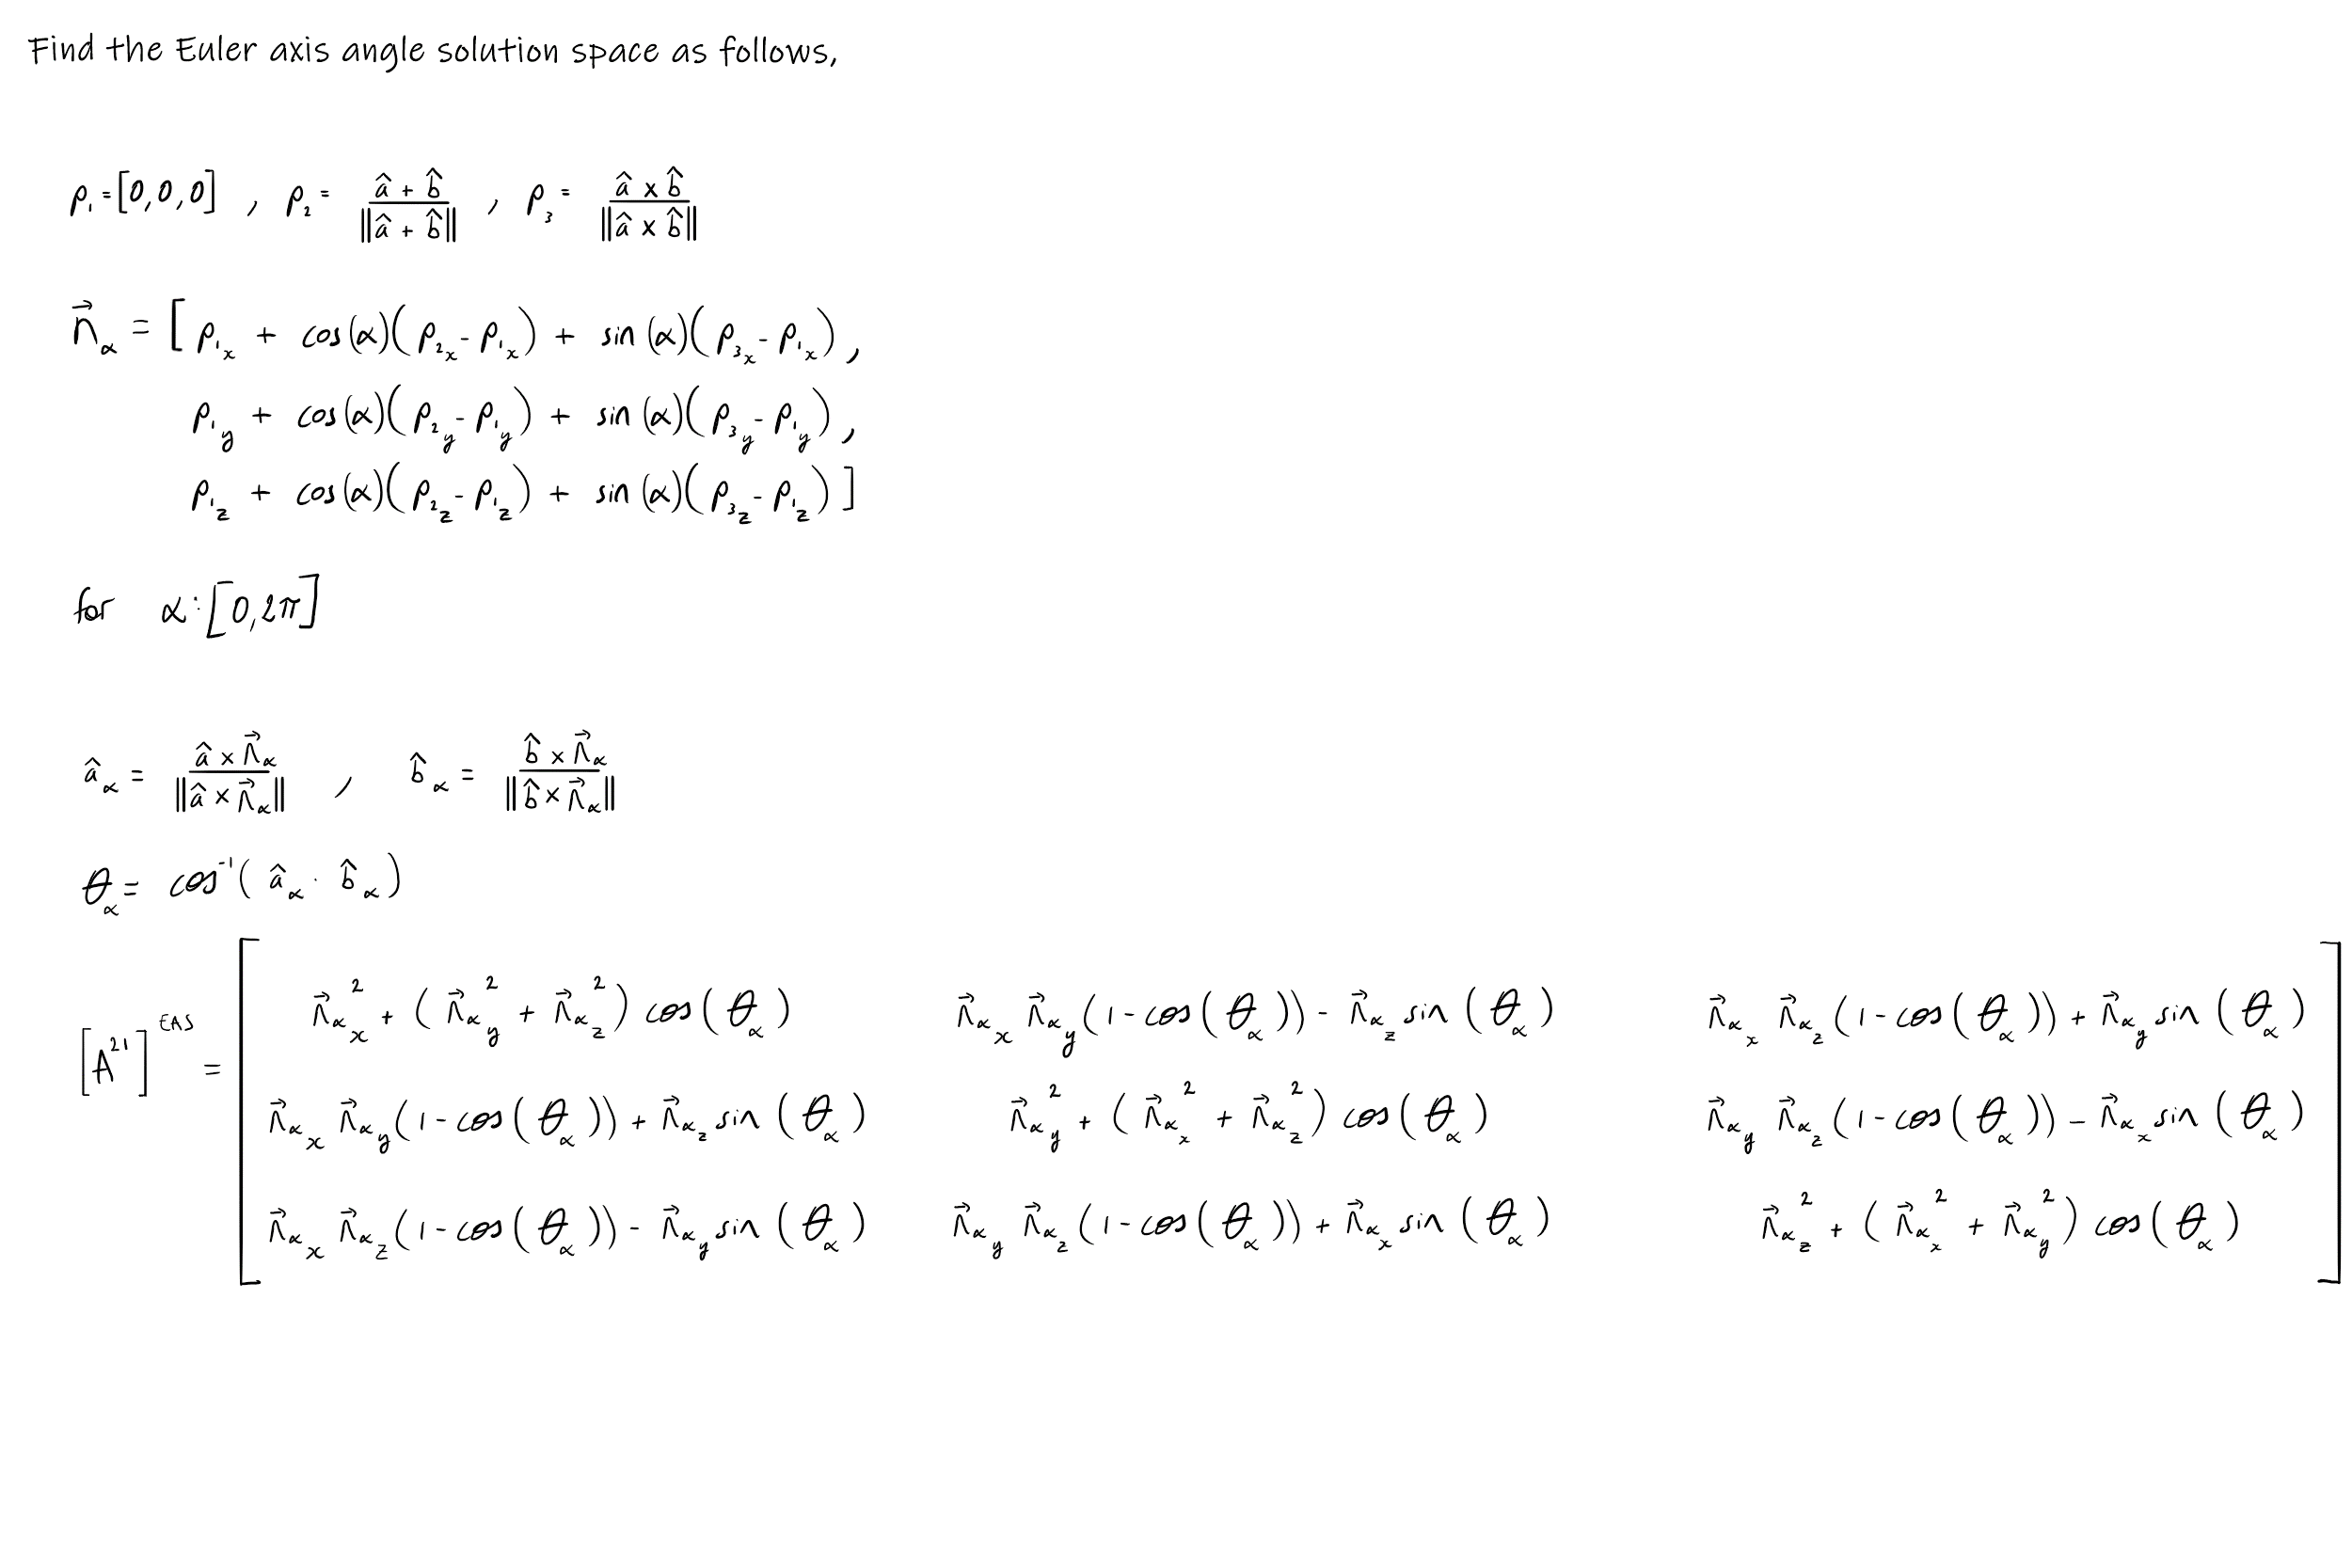 Find the Euler axis angle solution space as follows,
ρ₁ = [0, 0, 0] , ρ₂ = (â + b̂) / ‖â + b̂‖ , ρ₃ = (â × b̂) / ‖â × b̂‖
n⃗_α = [ ρ₁_x + cos(α)(ρ₂_x - ρ₁_x) + sin(α)(ρ₃_x - ρ₁_x) ,
ρ₁_y + cos(α)(ρ₂_y - ρ₁_y) + sin(α)(ρ₃_y - ρ₁_y) ,
ρ₁_z + cos(α)(ρ₂_z - ρ₁_z) + sin(α)(ρ₃_z - ρ₁_z) ]
for α:[0, 2π]
â_α = (â × n⃗_α) / ‖â × n⃗_α‖ , b̂_α = (b̂ × n⃗_α) / ‖b̂ × n⃗_α‖
θ_α = cos⁻¹( â_α · b̂_α )
[A²¹]^EAS = [ n⃗_α_x² + ( n⃗_α_y² + n⃗_α_z² ) cos( θ_α ) n⃗_α_x n⃗_α_y (1 - cos( θ_α )) - n⃗_α_z sin( θ_α ) n⃗_α_x n⃗_α_z (1 - cos( θ_α )) + n⃗_α_y sin( θ_α )
n⃗_α_x n⃗_α_y (1 - cos( θ_α )) + n⃗_α_z sin( θ_α ) n⃗_α_y² + ( n⃗_α_x² + n⃗_α_z² ) cos( θ_α ) n⃗_α_y n⃗_α_z (1 - cos( θ_α )) - n⃗_α_x sin( θ_α )
n⃗_α_x n⃗_α_z (1 - cos( θ_α )) - n⃗_α_y sin( θ_α ) n⃗_α_y n⃗_α_z (1 - cos( θ_α )) + n⃗_α_x sin( θ_α ) n⃗_α_z² + ( n⃗_α_x² + n⃗_α_y² ) cos( θ_α ) ]